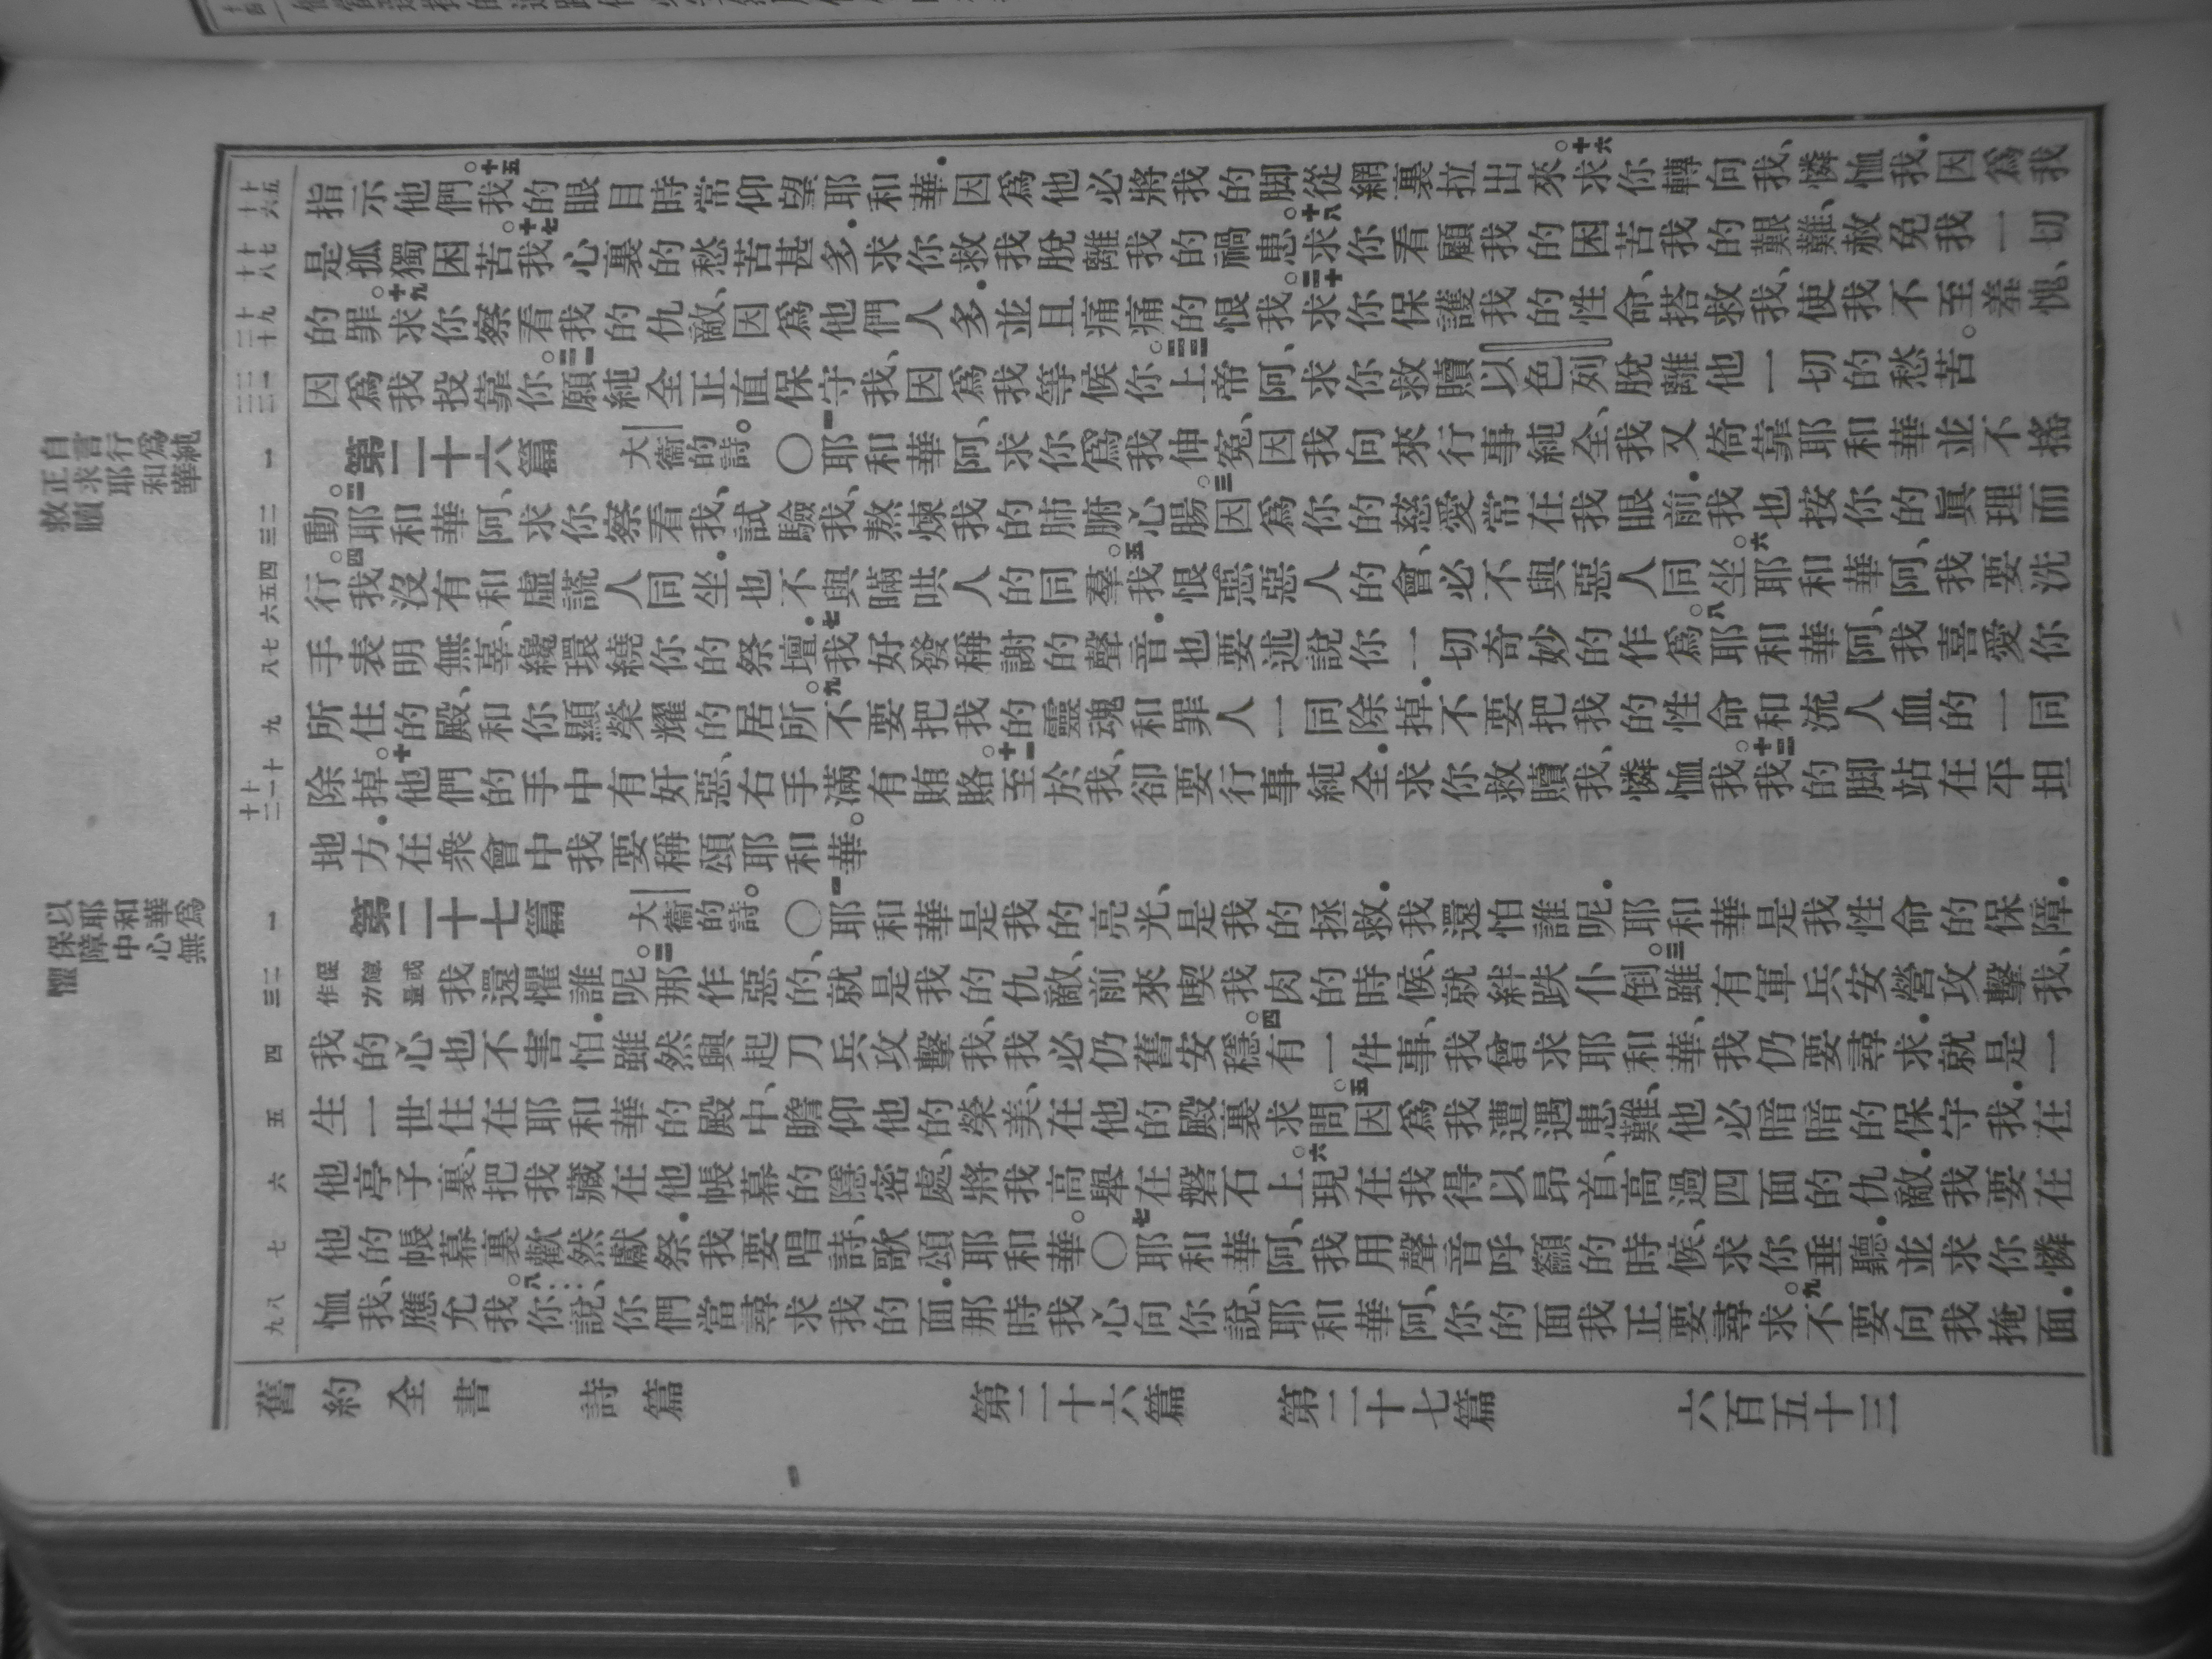 自言行爲純
正求耶和華
救贖
以耶和華爲
保障中心無
懼
指示他們。十五我的眼目時常仰望耶和華．因爲他必將我的脚從網裏拉出來。十六求你轉向我、憐恤我．因爲我
是孤獨困苦。十七我心裏的愁苦甚多．求你救我脫離我的禍患。十八求你看顧我的困苦我的艱難、赦免我一切
的罪。十九求你察看我的仇敵、因爲他們人多．並且痛痛的恨我。二十求你保護我的性命、搭救我、使我不至羞愧、
因爲我投靠你。二一願純全正直保守我、因爲我等候你。二二上帝阿、求你救贖以色列脫離他一切的愁苦。
第二十六篇 大衞的詩。○一耶和華阿、求你爲我伸冤、因我向來行事純全、我又倚靠耶和華並不搖
動。二耶和華阿、求你察看我、試驗我、熬煉我的肺腑心腸。三因爲你的慈愛常在我眼前．我也按你的眞理而
行。四我沒有和虛謊人同坐．也不與瞞哄人的同羣。五我恨惡惡人的會、必不與惡人同坐。六耶和華阿、我要洗
手表明無辜、纔環繞你的祭壇．七我好發稱謝的聲音．也要述說你一切奇妙的作爲。八耶和華阿、我喜愛你
所住的殿、和你顯榮耀的居所。九不要把我的靈魂和罪人一同除掉．不要把我的性命和流人血的一同
除掉。十他們的手中有奸惡、右手滿有賄賂。十一至於我、卻要行事純全．求你救贖我、憐恤我。十二我的脚站在平坦
地方．在衆會中我要稱頌耶和華。
第二十七篇 大衞的詩。○一耶和華是我的亮光、是我的拯救．我還怕誰呢．耶和華是我性命的保障．
保障或作力量我還懼誰呢。二那作惡的、就是我的仇敵、前來喫我肉的時候、就絆跌仆倒。三雖有軍兵安營攻擊我、
我的心也不害怕．雖然興起刀兵攻擊我、我必仍舊安穩。四有一件事、我曾求耶和華、我仍要尋求．就是一
生一世住在耶和華的殿中、瞻仰他的榮美、在他的殿裏求問。五因爲我遭遇患難、他必暗暗的保守我．在
他亭子裏、把我藏在他帳幕的隱密處、將我高舉在磐石上。六現在我得以昂首、高過四面的仇敵．我要在
他的帳幕裏、歡然獻祭．我要唱詩、歌頌耶和華。○七耶和華阿、我用聲音呼籲的時候、求你垂聽．並求你憐
恤我、應允我。八你說、你們當尋求我的面．那時我心向你說、耶和華阿、你的面我正要尋求。九不要向我掩面．
舊約全書 詩篇 第二十六篇 第二十七篇 六百五十三